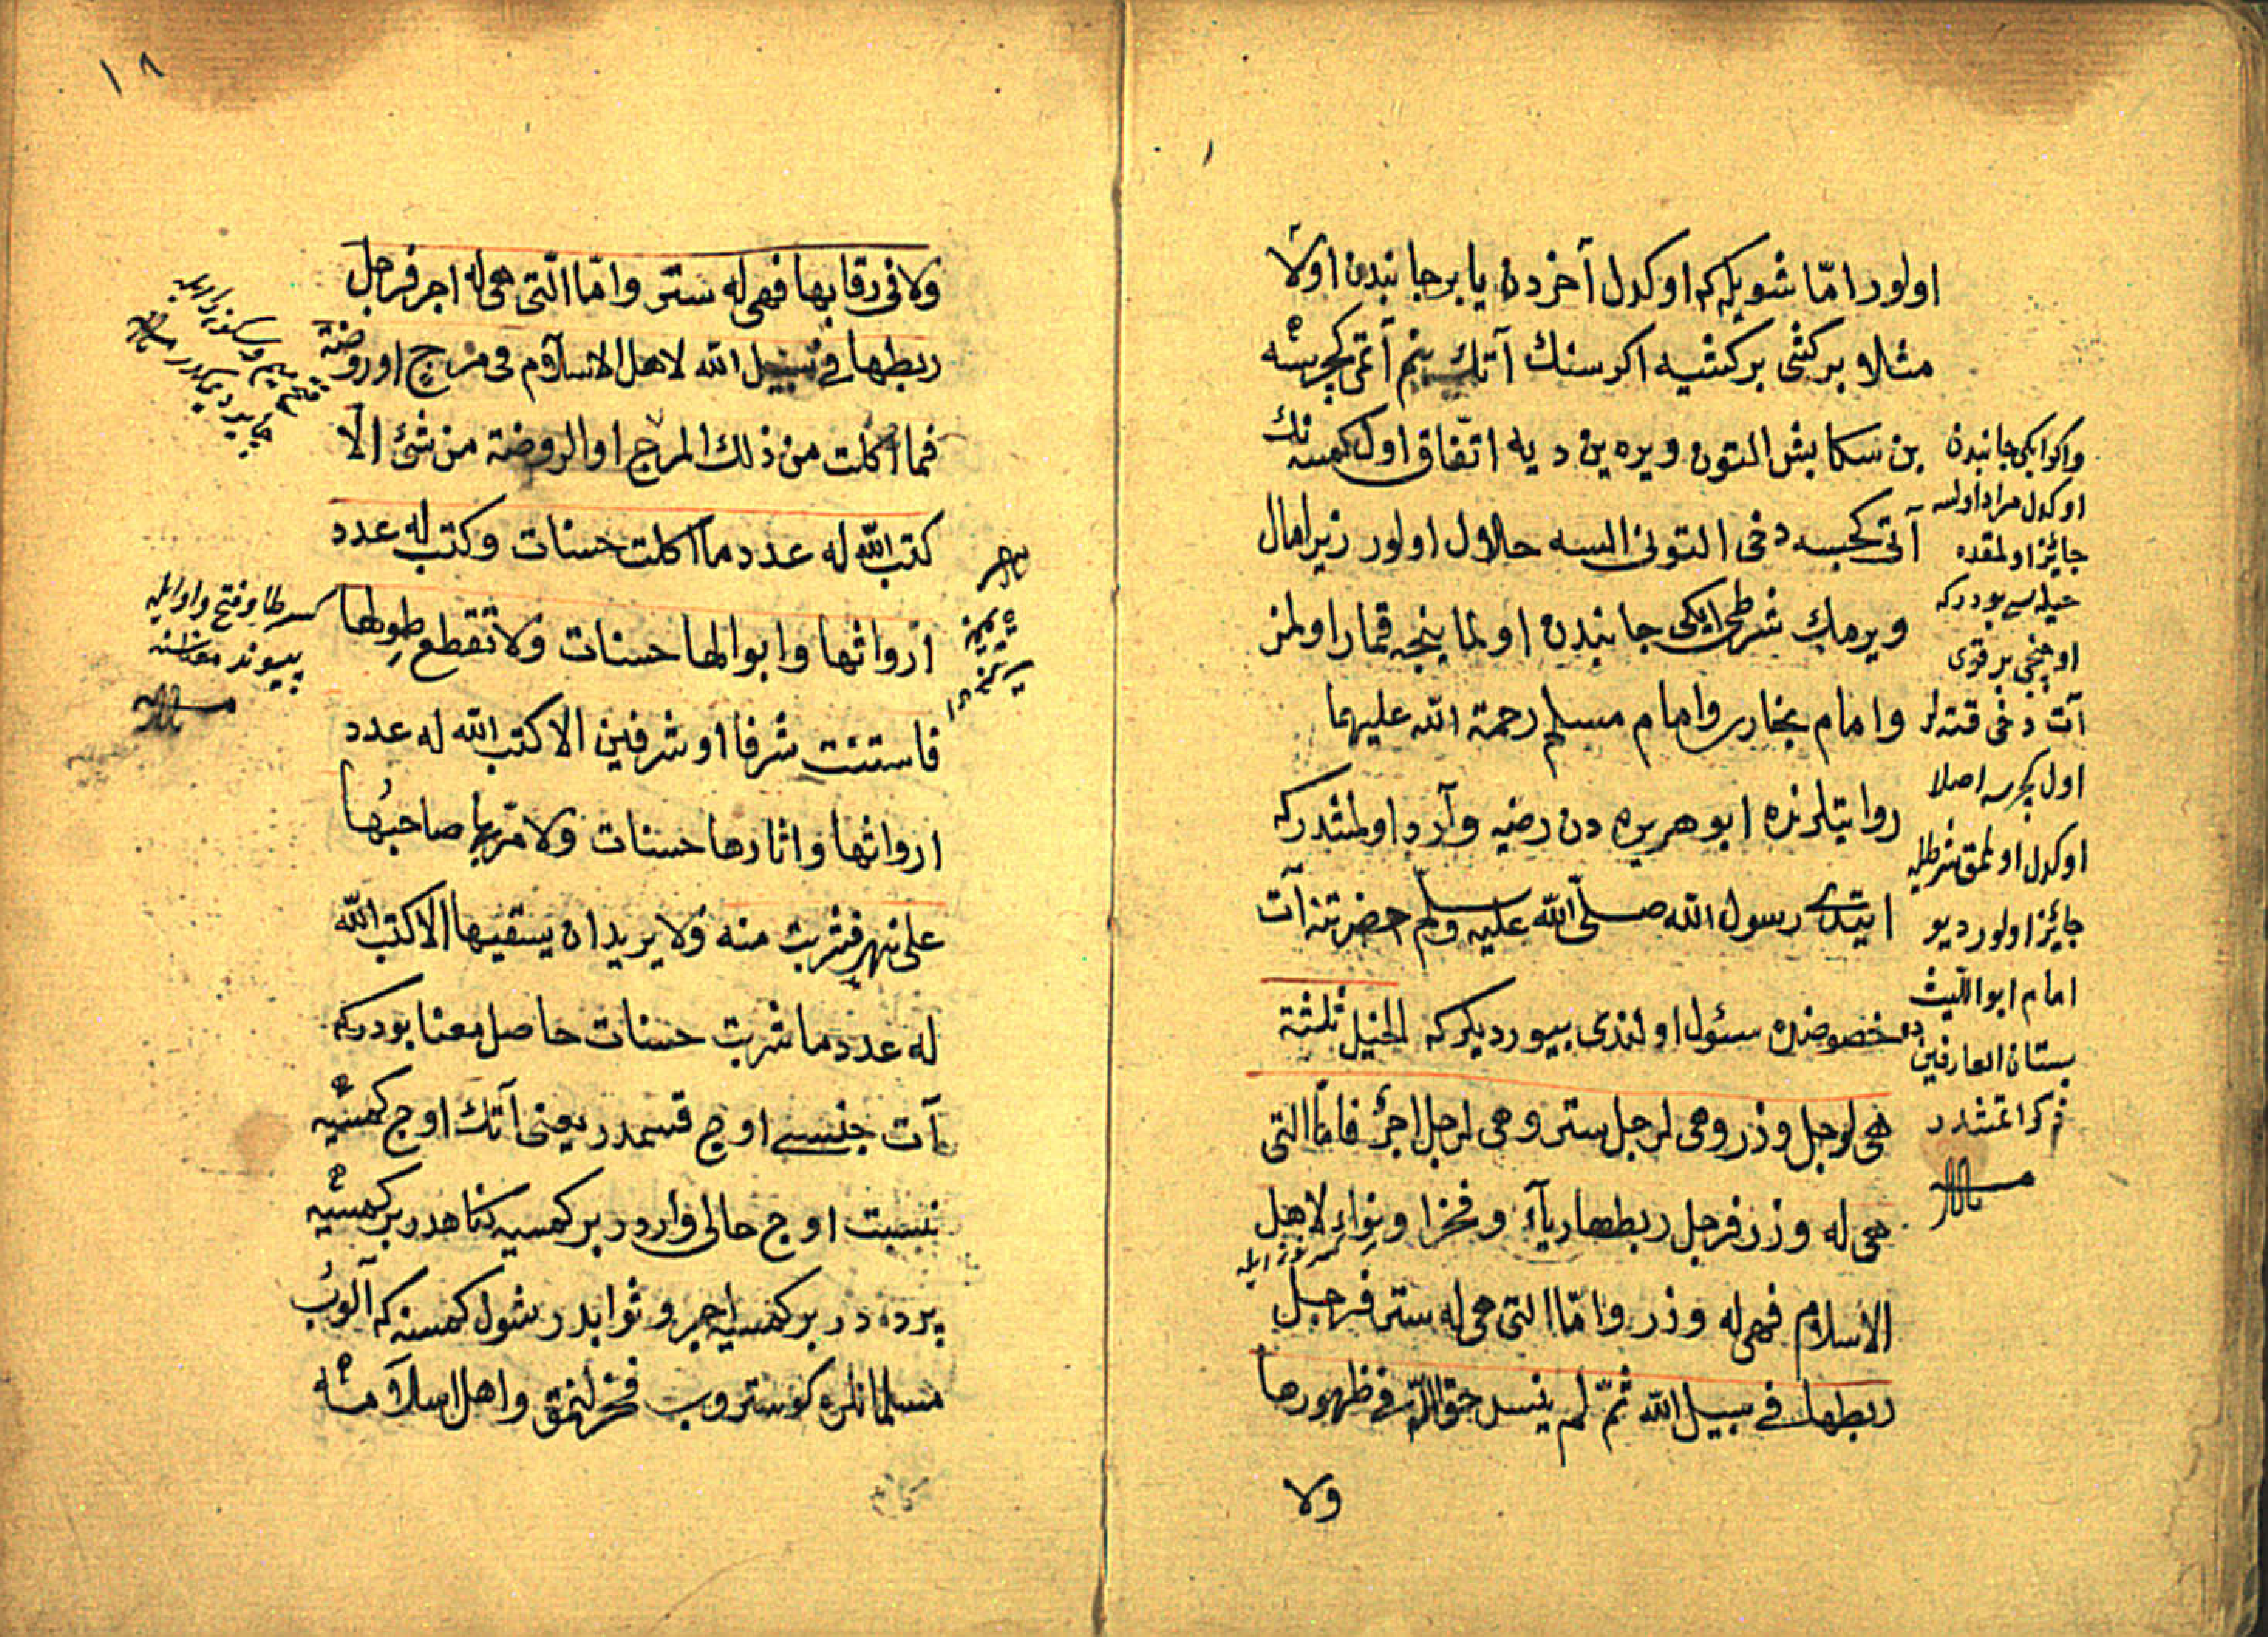 اولور امّا شويله كه اوكدل آخردن يا برجانبدن اولا
مثلا بر كشى بر كشيه اكر سنك آتك بنم آتمى كچرسه
بن سكا بش التون ويره ين ديه اتّفاق اول كمسنه نك
آتى كچسه دخى التونى السه حلال اولور زيرا مال
ويرمك شرطى ايكى جانبدن اولماينجه قمار اولمز
وامام بخارى وامام مسلم رحمة الله عليهما
روايتلرنده ابو هريره دن رضيه وآرد اولمشدركه
ايتدى رسول الله صلّى الله عليه وسلّم حضرتنه آت
خصوصنده سئول اولندى بيورديلركه الخيل ثلثة
هى لرجل وذر وهى لرجل ستر وهى لرجل اجرٌ فامّا التى
هى له وذر فرجل ربطها رياءً وفخرا ونواءً لاهل
كسر نون ايله
الاسلام فهى له وذر وامّا التى هى له ستر فرجل
ربطها فى سبيل الله ثمّ لم ينس حق الله فى ظهورها
ولا
واكر ايكى جانبدن
اوكدل مراد اولسه
جائز اولمقده
حيله سى بودركه
اوچنجى بر قوى
آت دخى قته لر
اول كچرسه اصلا
اوكدل اولمق شرطيله
جائز اولور ديو
امام ابو الليث
بستان العارفين ده
ذكر اتمشدر
١٨
ولا فى رقابها فهى له ستر وامّا الّتى هى له اجر فرجل
ربطها فى سبيل الله لاهل الاسلام فى مرج او روضة
فما اكلت من ذلك المرج او الروضة من شئ الّا
كتب الله له عدد ما اكلت حسنات وكتب له عدد
ارواثها وابوالها حسنات ولا تقطع طِوَلها
فاستنت شرفا او شرفين الا كتب الله له عدد
ارواثها واثارها حسنات ولا مرّ بها صاحبُها
على نهر فشربت منه ولا يريد ان يسقيها الا كتب الله
له عدد ما شربت حسنات حاصل معنا بودركه
آت جنسى اوچ قسمدر يعنى آتك اوچ كمسيه
نسبت اوچ حالى واردر بر كمسيه كناهدر بر كمسيه
پرده در بر كمسيه اجر وثوابدر شول كمسنه كه آلوب
مسلمانلره كوستروب فخر لنمق واهل اسلامه
كسر طا وفتح واو ايله
پيوند معناسنه